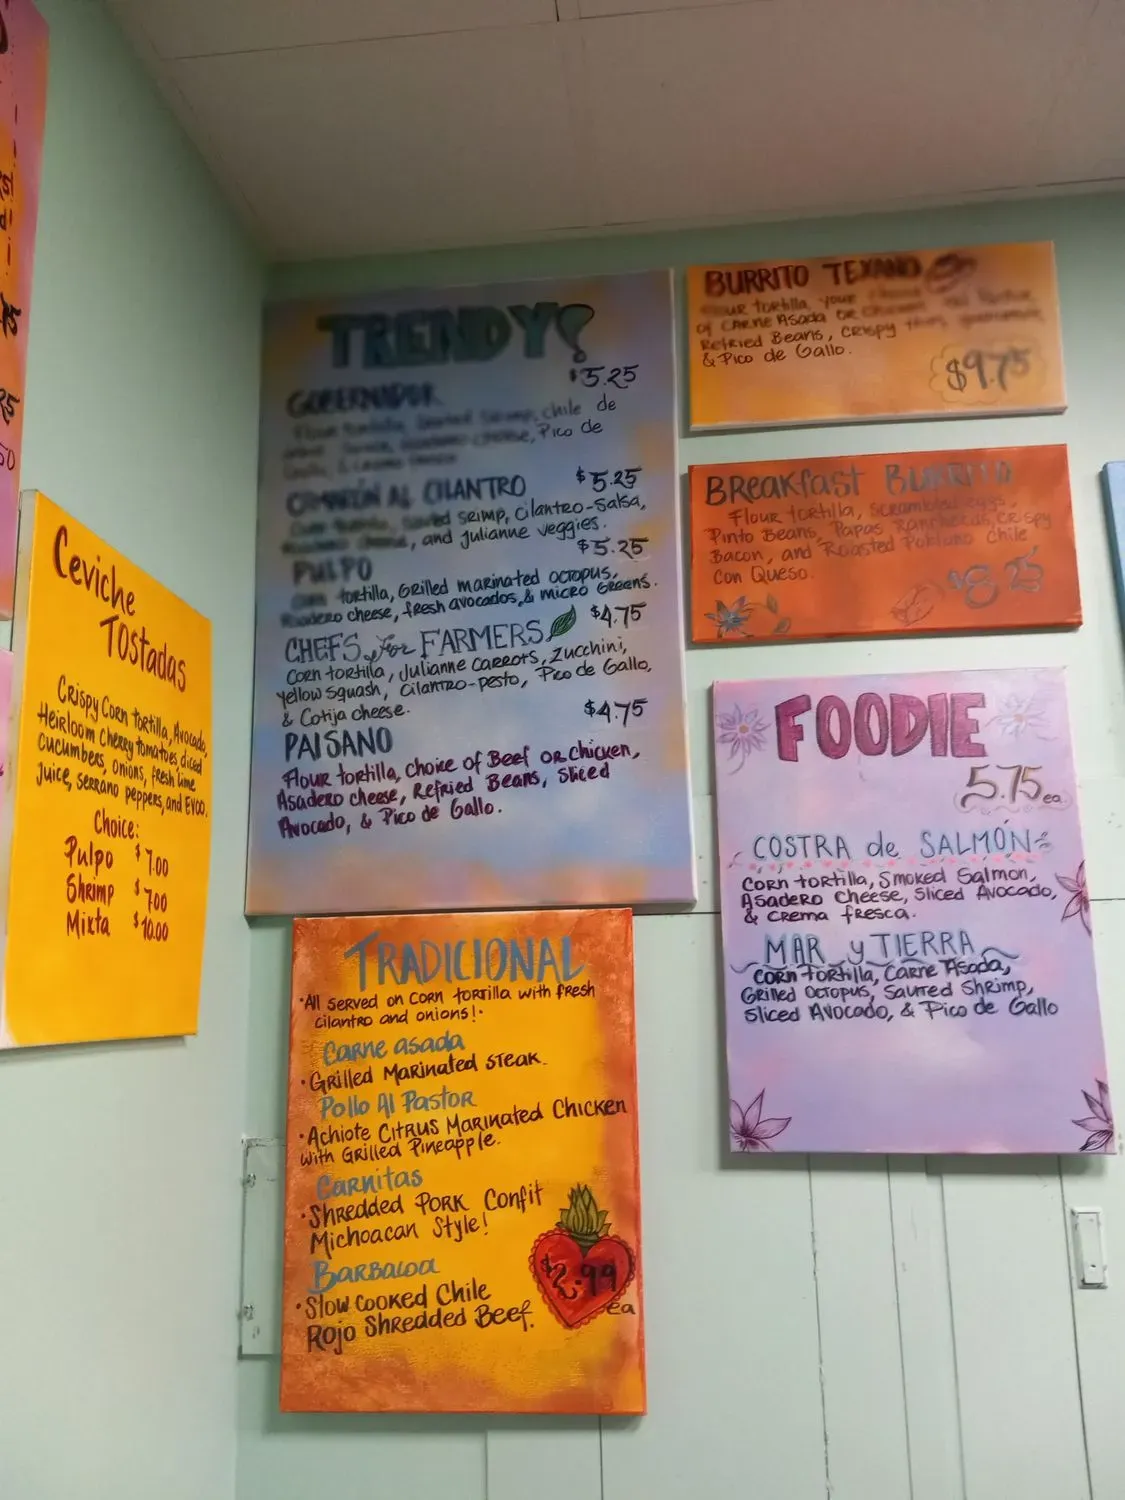 Ceviche
Tostadas
Crispy Corn tortilla, Avocado,
Heirloom cherry tomatoes, diced
cucumbers, onions, fresh lime
juice, serrano peppers, and EVOO.
Choice:
Pulpo $7.00
Shrimp $7.00
Mixta $10.00
TRENDY
$5.25
GOBERNADOR
Flour tortilla, Shrimp, chile de
cheese, Pico de
CAMARÓN AL CILANTRO $5.25
srimp, cilantro-salsa,
cheese, and julianne veggies.
$5.25
PULPO
tortilla, Grilled marinated octopus,
Asadero cheese, fresh avocados, & micro Greens.
$4.75
CHEFS for FARMERS
Corn tortilla, Julianne carrots, Zucchini,
yellow squash, Cilantro-pesto, Pico de Gallo,
& Cotija cheese.
$4.75
PAISANO
Flour tortilla, choice of Beef or chicken,
Asadero cheese, Refried Beans, Sliced
Avocado, & Pico de Gallo.
BURRITO TEXANO
Flour tortilla, your
of Carne Asada or
Refried Beans, crispy
& Pico de Gallo.
$9.75
Breakfast BURRITO
Flour tortilla, scrambled eggs,
Pinto Beans, Papas Rancheras, crispy
Bacon, and Roasted Poblano Chile
con Queso.
$8.25
FOODIE
5.75 ea.
COSTRA de SALMÓN
Corn tortilla, Smoked Salmon,
Asadero Cheese, Sliced Avocado,
& crema fresca.
MAR y TIERRA
Corn tortilla, Carne Asada,
Grilled Octopus, Sauteed Shrimp,
Sliced Avocado, & Pico de Gallo
TRADICIONAL
•All served on corn tortilla with fresh
cilantro and onions!•
Carne asada
•Grilled Marinated steak.
Pollo Al Pastor
•Achiote Citrus Marinated Chicken
with Grilled Pineapple.
Carnitas
•Shredded Pork Confit
Michoacan Style!
Barbacoa
•Slow Cooked Chile
Rojo Shredded Beef.
$2.99
ea